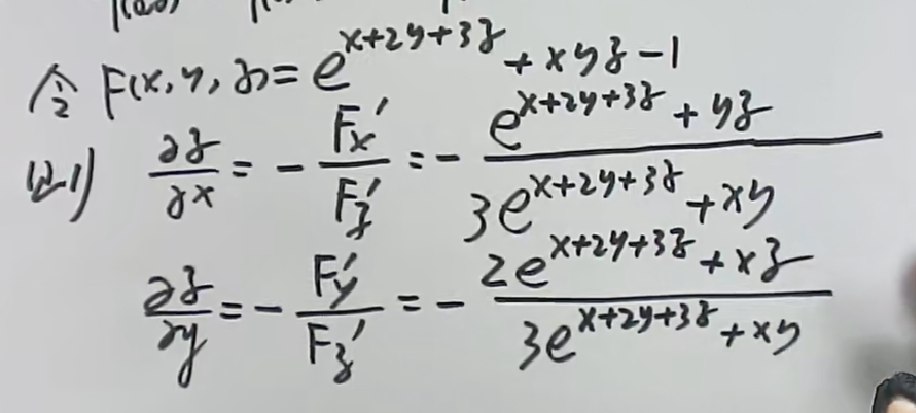 令 F(x, y, z) = e^{x+2y+3z} + xyz - 1
则 ∂z/∂x = - F'x/F'z = - (e^{x+2y+3z} + yz)/(3e^{x+2y+3z} + xy)
∂z/∂y = - F'y/F'z = - (2e^{x+2y+3z} + xz)/(3e^{x+2y+3z} + xy)